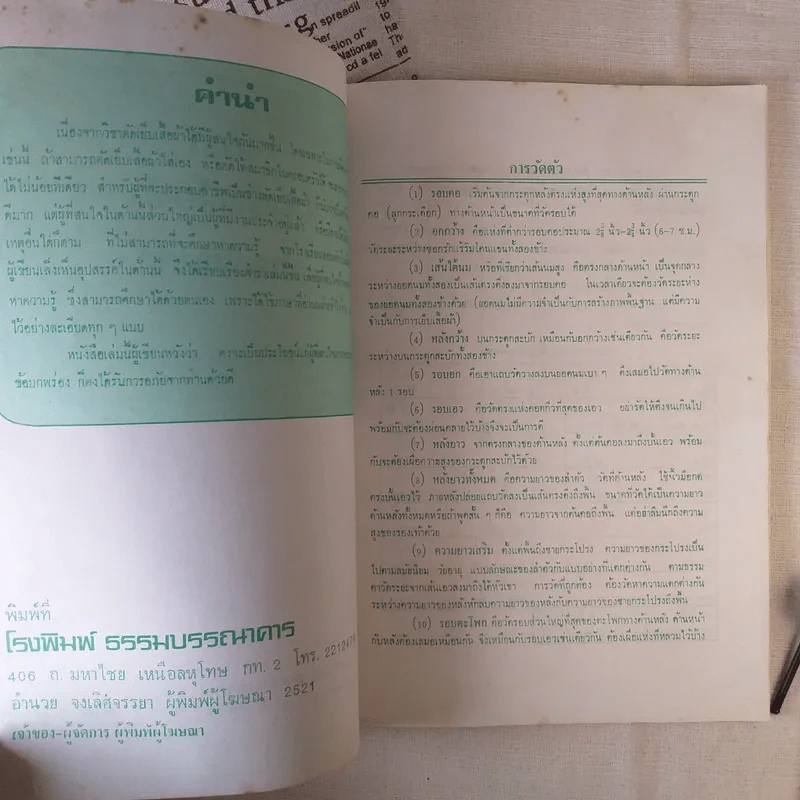 n spreadil
her
sion of"
Nationae
cd a fel
to
ha
Th
ad
คำนำ
เนื่องจากวิชาตัดเย็บเสื้อผ้าได้มีผู้สนใจกันมากขึ้น โดยเฉพาะใน
เช่นนี้ ถ้าสามารถตัดเย็บเสื้อผ้าใส่เอง หรือตัดให้สมาชิกในครอบครัวได้
ได้ไม่น้อยทีเดียว สำหรับผู้ที่จะประกอบอาชีพเป็นช่างตัดเย็บเสื้อผ้า
ดีมาก แต่ผู้ที่สนใจในด้านนี้ส่วนใหญ่เป็นผู้ที่มีงานประจำอยู่แล้ว
เหตุอื่นใดก็ตาม ที่ไม่สามารถที่จะศึกษาหาความรู้ จากโรงเรียน
ผู้เขียนเล็งเห็นอุปสรรคในด้านนี้ จึงได้เรียบเรียงตำราเล่มนี้ขึ้น
หาความรู้ ซึ่งสามารถศึกษาได้ด้วยตนเอง เพราะได้ใช้ภาษาที่อ่าน
ไว้อย่างละเอียดทุก ๆ แบบ
หนังสือเล่มนี้ผู้เขียนหวังว่า คงจะเป็นประโยชน์แก่ผู้
ข้อบกพร่อง ก็คงได้รับการอภัยจากท่านด้วยดี
พิมพ์ที่
โรงพิมพ์ ธรรมบรรณาคาร
406 ถ. มหาไชย เหนือลหุโทษ กท. 2 โทร. 2212474
อำนวย จงเลิศจรรยา ผู้พิมพ์ผู้โฆษณา 2521
เจ้าของ-ผู้จัดการ ผู้พิมพ์ผู้โฆษณา
การวัดตัว
(1) รอบคอ เริ่มต้นจากกระดูกหลังตรงแห่งสูงที่สุดทางด้านหลัง ผ่านกระดูก
คอ (ลูกกระเดือก) ทางด้านหน้าเป็นขนาดที่วัดรอบได้
(2) อกกว้าง คือแห่งที่ต่ำกว่ารอบคอประมาณ นิ้ว นิ้ว (6-7 ซ.ม.)
วัดระยะระหว่างซอกรักแร้ริมโคนแขนทั้งสองข้าง
(3) เส้นใต้นม หรือที่เรียกว่าเส้นนมสูง คือตรงกลางด้านหน้า เป็นจุดกลาง
ระหว่างยอดนมทั้งสองเป็นเส้นตรงดิ่งลงมาจากรอบคอ ในเวลาเดียวจะต้องวัดระยะห่าง
ของยอดนมทั้งสองข้างด้วย (ยอดนมไม่มีความจำเป็นกับการสร้างภาพพื้นฐาน แต่มีความ
จำเป็นกับการเย็บเสื้อผ้า)
(4) หลังกว้าง บนกระดูกสะบัก เหมือนกับอกกว้างเช่นเดียวกัน คือวัดระยะ
ระหว่างบนกระดูกสะบักทั้งสองข้าง
(5) รอบอก คือเอาแถบวัดวางลงบนยอดนมเบา ๆ ดึงเสมอไปวัดทางด้าน
หลัง 1 รอบ
(6) รอบเอว คือวัดตรงแห่งคอดกิ่วที่สุดของเอว อย่ารัดให้ตึงจนเกินไป
พร้อมกับจะต้องผ่อนคลายไว้บ้างจึงจะเป็นการดี
(7) หลังยาว จากตรงกลางของด้านหลัง ตั้งแต่ต้นคอลงมาถึงบั้นเอว พร้อม
กับจะต้องเผื่อความสูงของกระดูกสะบักไว้ด้วย
(8) หลังยาวทั้งหมด คือความยาวของลำตัว วัดที่ด้านหลัง ใช้นิ้วมือกด
ตรงบั้นเอวไว้ ภายหลังปล่อยแถบวัดลงเป็นเส้นตรงดิ่งถึงพื้น ขนาดที่วัดได้เป็นความยาว
ด้านหลังทั้งหมดหรือถ้าพูดสั้น ๆ ก็คือ ความยาวจากต้นคอถึงพื้น แต่อย่าลืมนึกถึงความ
สูงของรองเท้าด้วย
(9) ความยาวเสริม ตั้งแต่พื้นถึงชายกระโปรง ความยาวของกระโปรงเป็น
ไปตามสมัยนิยม วัยอายุ แบบลักษณะของลำตัวกับแบบอย่างที่แตกต่างกัน ตามธรรม
ดาวัดระยะจากเส้นเอวลงมาถึงใต้หัวเข่า การวัดที่ถูกต้อง ต้องวัดหาความแตกต่างกัน
ระหว่างความยาวของหลังหักลบความยาวของหลังกับความยาวของชายกระโปรงถึงพื้น
(10) รอบตะโพก คือวัดรอบส่วนใหญ่ที่สุดของตะโพกทางด้านหลัง ด้านหน้า
กับหลังต้องเสมอเหมือนกัน จึงเหมือนกับรอบเอวเช่นเดียวกัน ต้องเผื่อแห่งที่หลวมไว้บ้าง